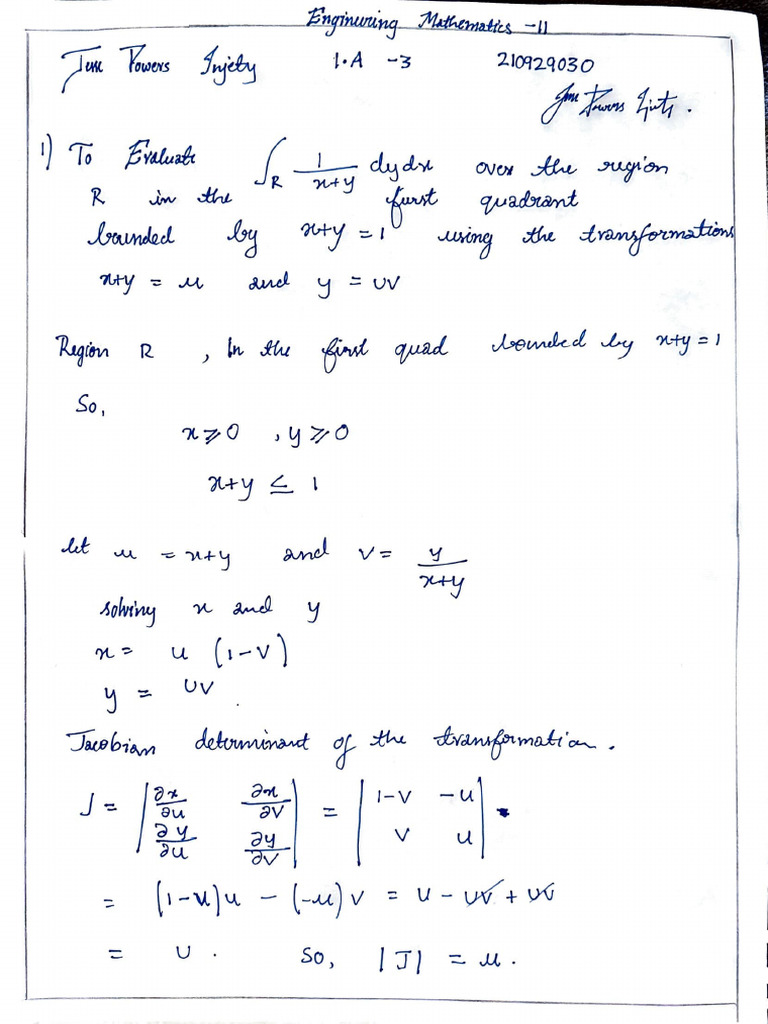 Enginuring Mathematics -II
Powers Injety 1.A -3 210929030
Powers
1) To Evaluate ∫_R 1/(x+y) dydx over the region
R in the first quadrant
bounded by x+y = 1 using the transformations
x+y = u and y = uv
Region R , In the first quad bounded by x+y = 1
So,
x ⩾ 0 , y ⩾ 0
x+y ≤ 1
let u = x+y and v = y/(x+y)
solving x and y
x = u (1-v)
y = uv .
Jacobian determinant of the transformation.
J = | ∂x/∂u ∂x/∂v ; ∂y/∂u ∂y/∂v | = | 1-v -u ; v u |
= (1-v)u - (-u)v = u - uv + uv
= u . So, |J| = u .